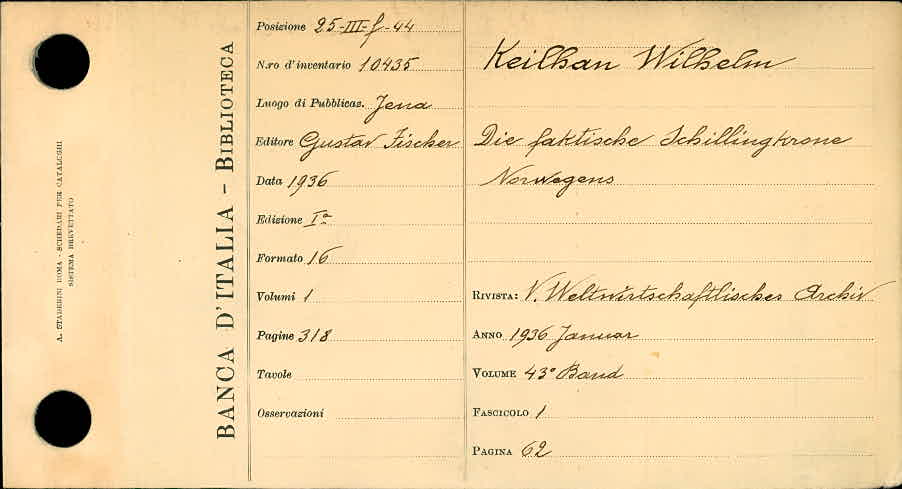 A. STADERINI ROMA - SCHEDARI PER CATALOGHI
SISTEMA BREVETTATO
BANCA D'ITALIA - BIBLIOTECA
Posizione 25-III-f-44
N.ro d'inventario 10435
Luogo di Pubblicaz. Jena
Editore Gustav Fischer
Data 1936
Edizione Iª
Formato 16
Volumi 1
Pagine 318
Tavole
Osservazioni
Keilhan Wilhelm
Die faktische Schillingkrone
Norwegens
RIVISTA: V. Weltwirtschaftlisches Archiv
ANNO 1936 Januar
VOLUME 43° Band
FASCICOLO 1
PAGINA 62